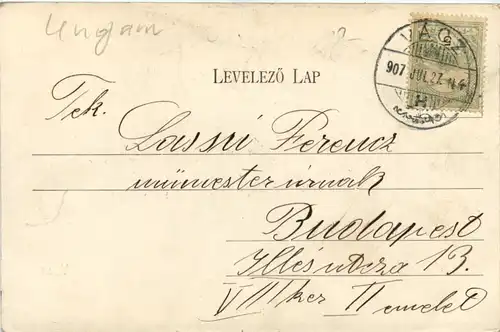 Ungarn
VÁCZ
907 JUL. 27
LEVELEZŐ LAP
Tek.
Lassú Ferencz
műmester úrnak
Budapest
Illés útcza 13.
VIII ker II emelet